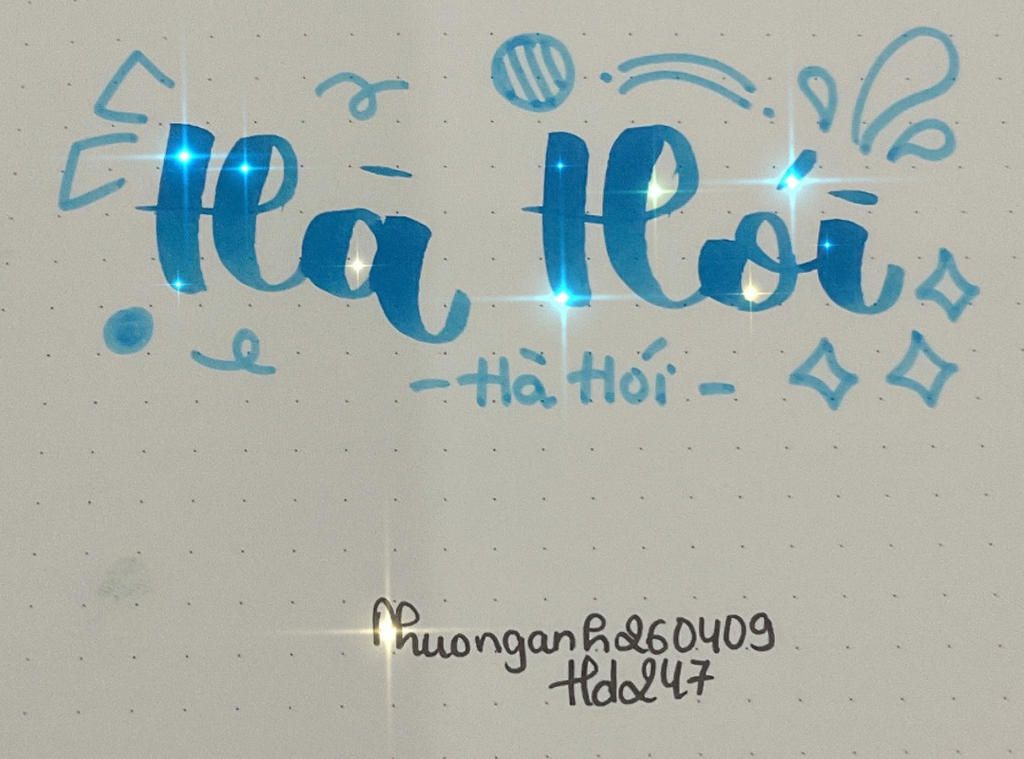 Hà Hói
- Hà Hói -
Phuonganh260409
Hda247